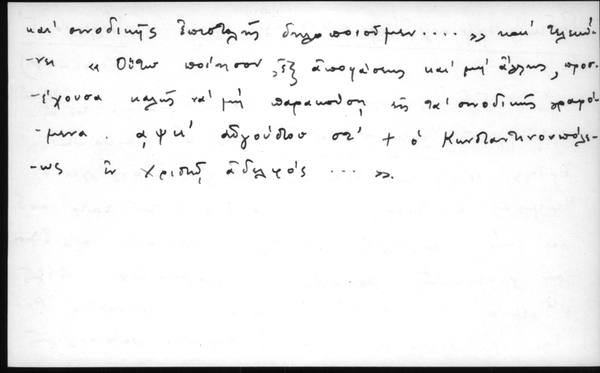 καὶ συνοδικῆς ἐπιστολῆς δηλοποιοῦμεν .... » καὶ τελειώ-
-νει « Οὕτω ποίησον, ἐξ ἀποφάσεως καὶ μὴ ἄλλως, προσ-
-έχουσα καλῶς νὰ μὴ παρακούσῃ εἰς τὰ συνοδικῶς γραφό-
-μενα . αψκ' αὐγούστου στ' + ὁ Κωνσταντινουπόλε-
-ως ἐν Χριστῷ ἀδελφός ... ».